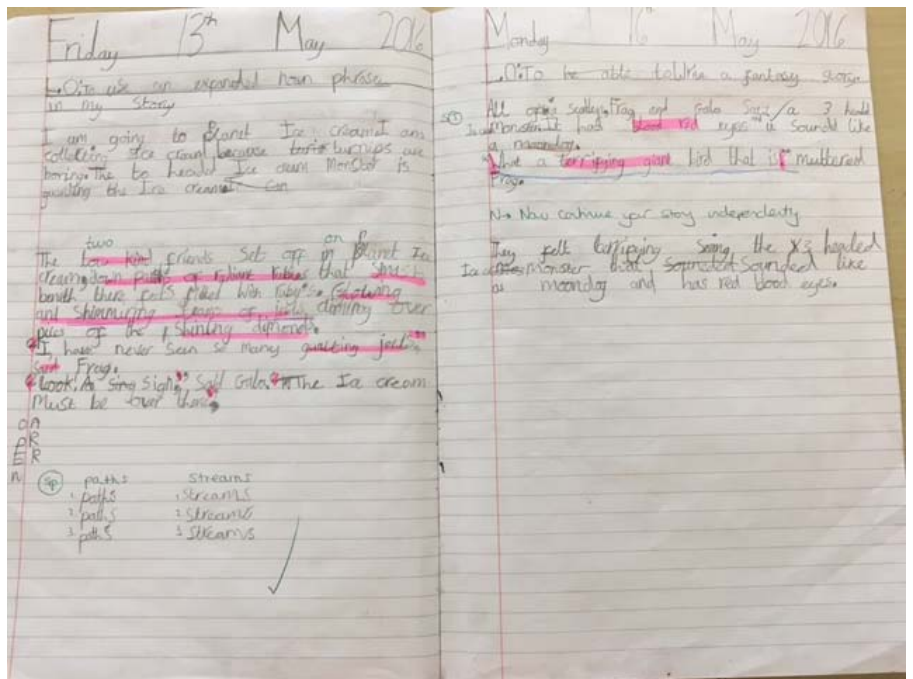 Friday 13th May 2016
L.O: To use an expanded noun phrase
in my story
I am going to Planet Ice cream I am
collecting Ice cream because turnips are
boring. The to headed Ice cream Monster is
guarding the Ice cream
two
on P
The kind friends Set off in Planet Ice
cream down paths of rubies that
filled with ruby's. Glowing
and Shimmering over
of the Shinling dimonds.
I have never Seen so many
Said Frag.
Look! A sing sign," Said Gala. The Ice cream
Must be over there
O A
P R
E R
N
Sp paths streams
1. paths 1. streams
2. paths 2. streams
3. paths 3. streams
Monday 16th May 2016
L.O: To be able to write a fantasy story.
All of a Frag and Gala a 3 head
monster. It had blood red eyes it Sound like
a
What a terrifying giant bird that is" muttered
Frag.
N→ Now continue your story independently
They felt the 3 headed
Monster that Sounded Sounded like
a moondog and has red blood eyes.